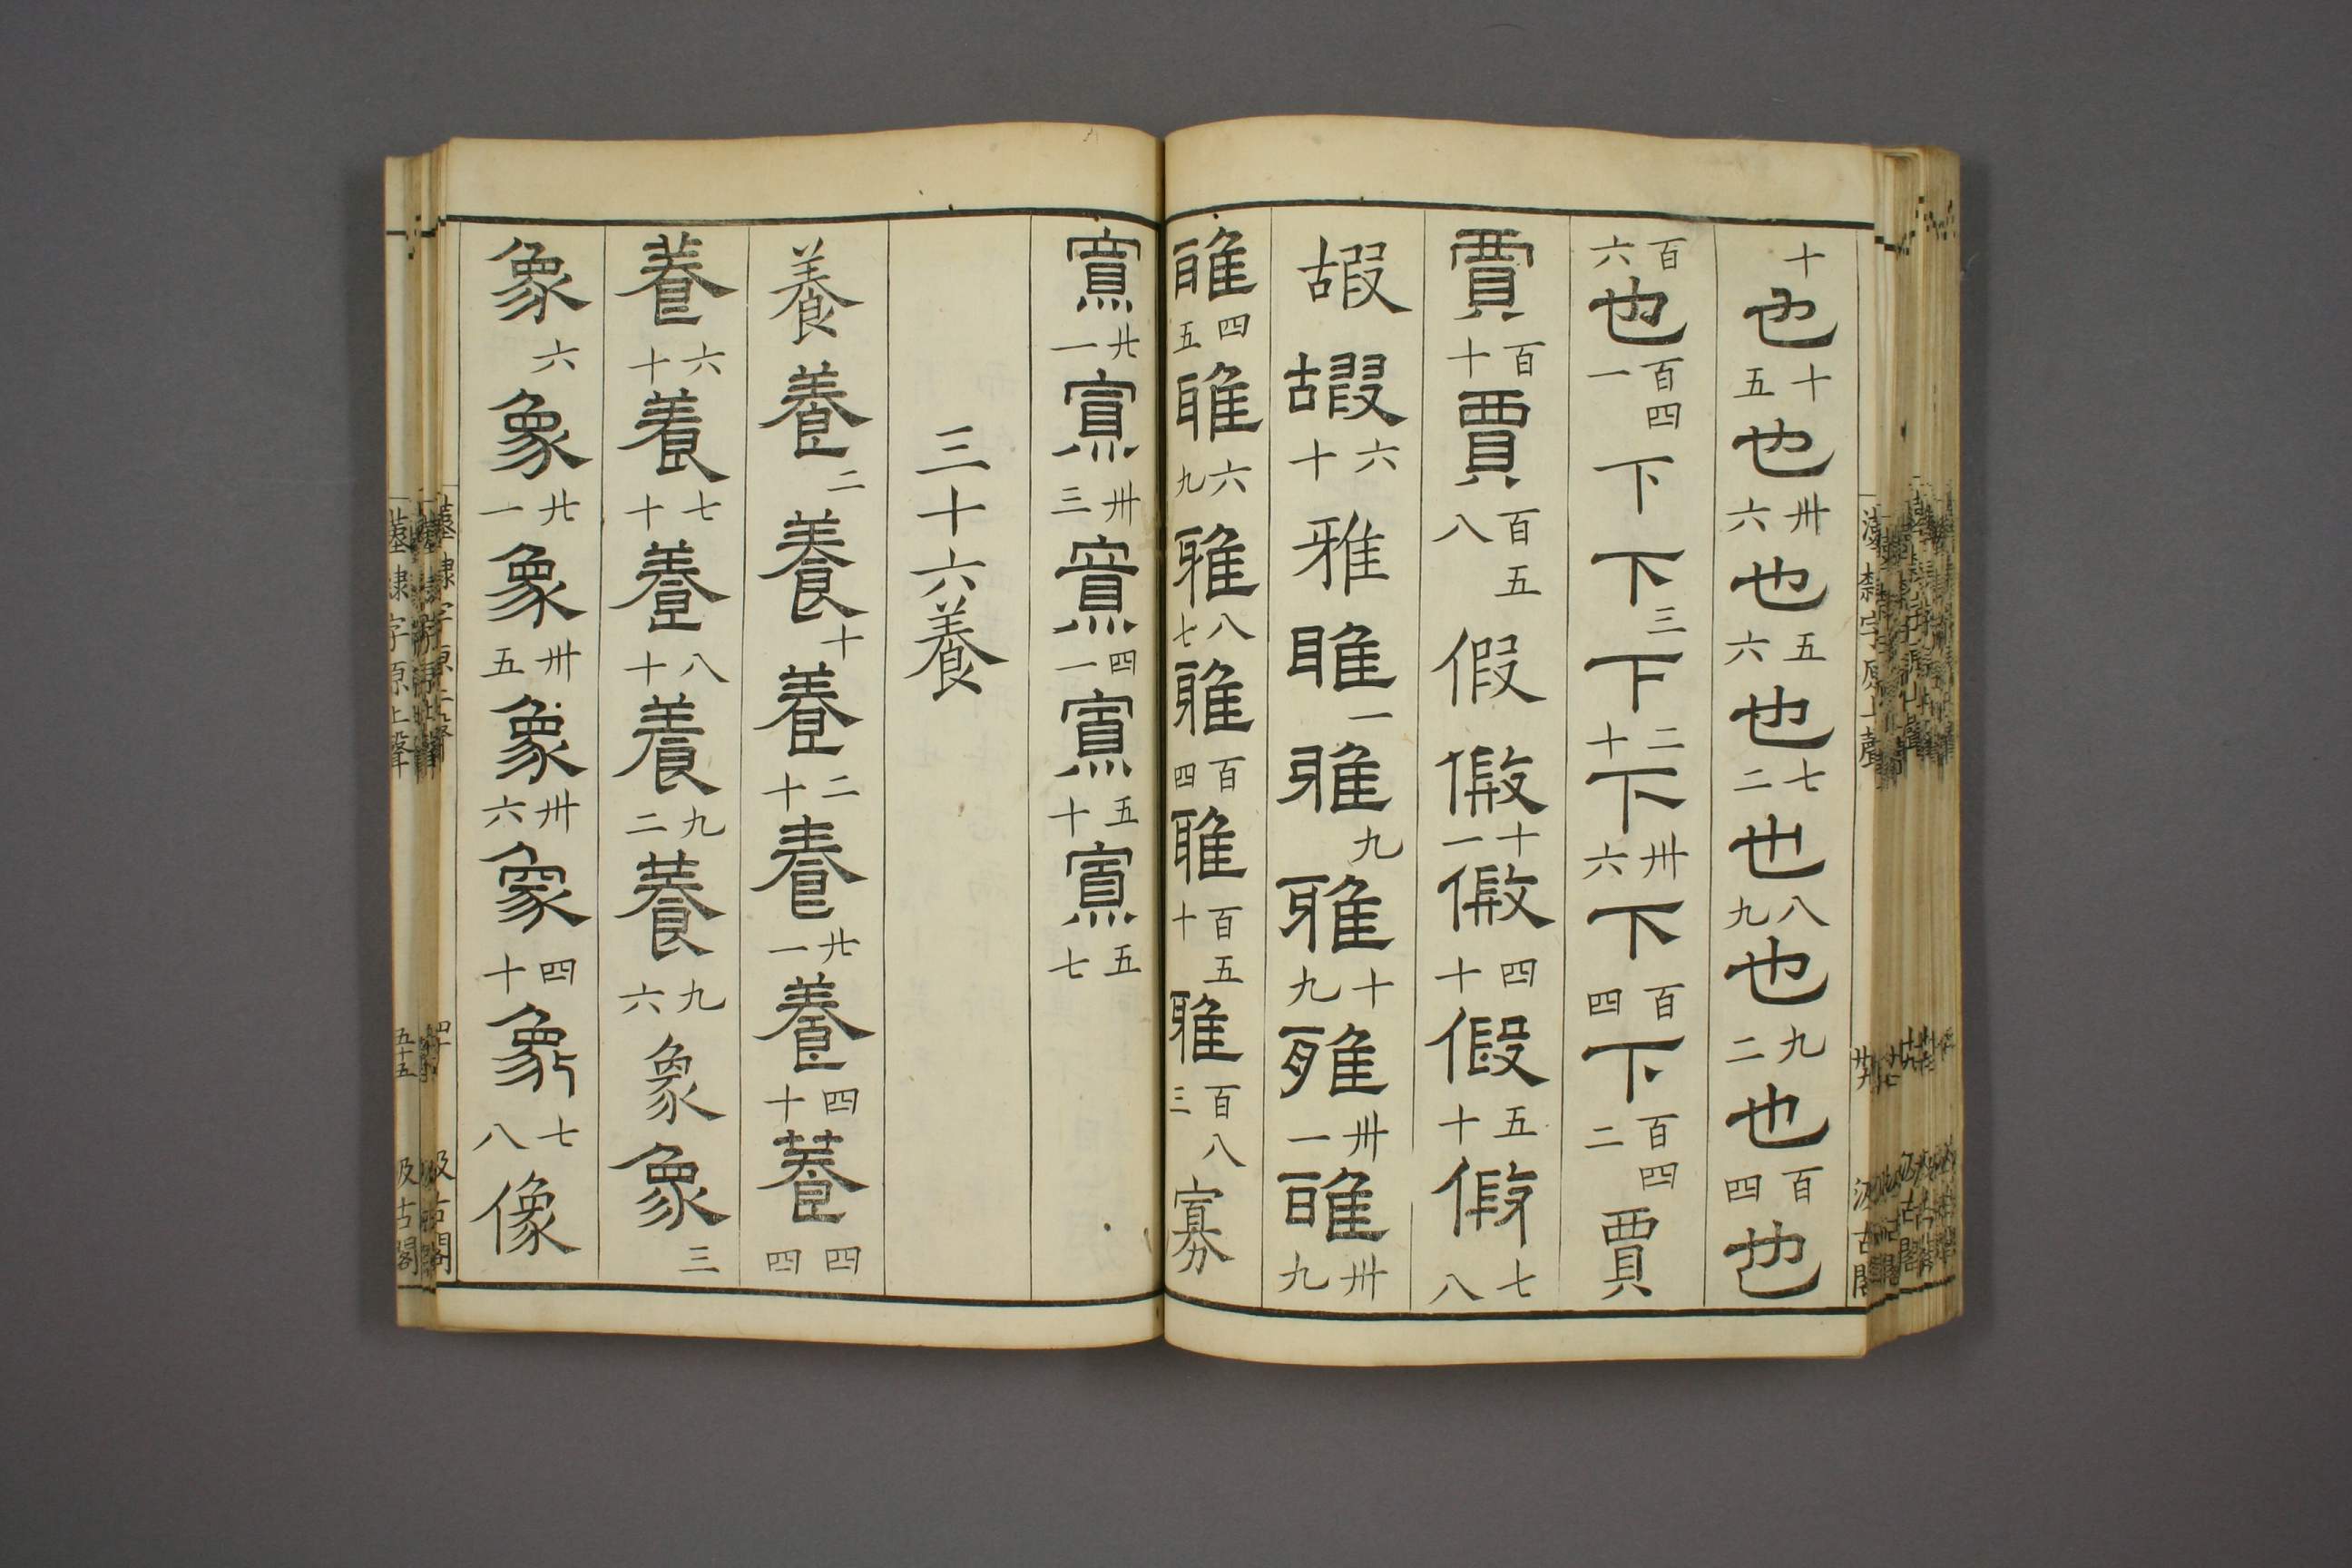 十也十五也卅六也五六也七二也八九也九二也百四也
百六也百四一下下三下二十下卅六下百四下百四二賈
賈百十賈百五八假假十一假四十假五十假七八
嘏嘏六十雅雅一雅九雅十九雅卅一雅卅九
雅四五雅六九雅八七雅百四雅百五十雅百八三寡
寡廿一寡卅三寡四一寡五十寡五七
三十六養
養養二養十養二十養廿一養四十養四四
養六十養七十養八十養九二養九六象象三
象六象廿一象卅五象卅六象四十象七八像
漢隸字原上聲
廿九
汲古閣
漢隸字原上聲
五十五
汲古閣